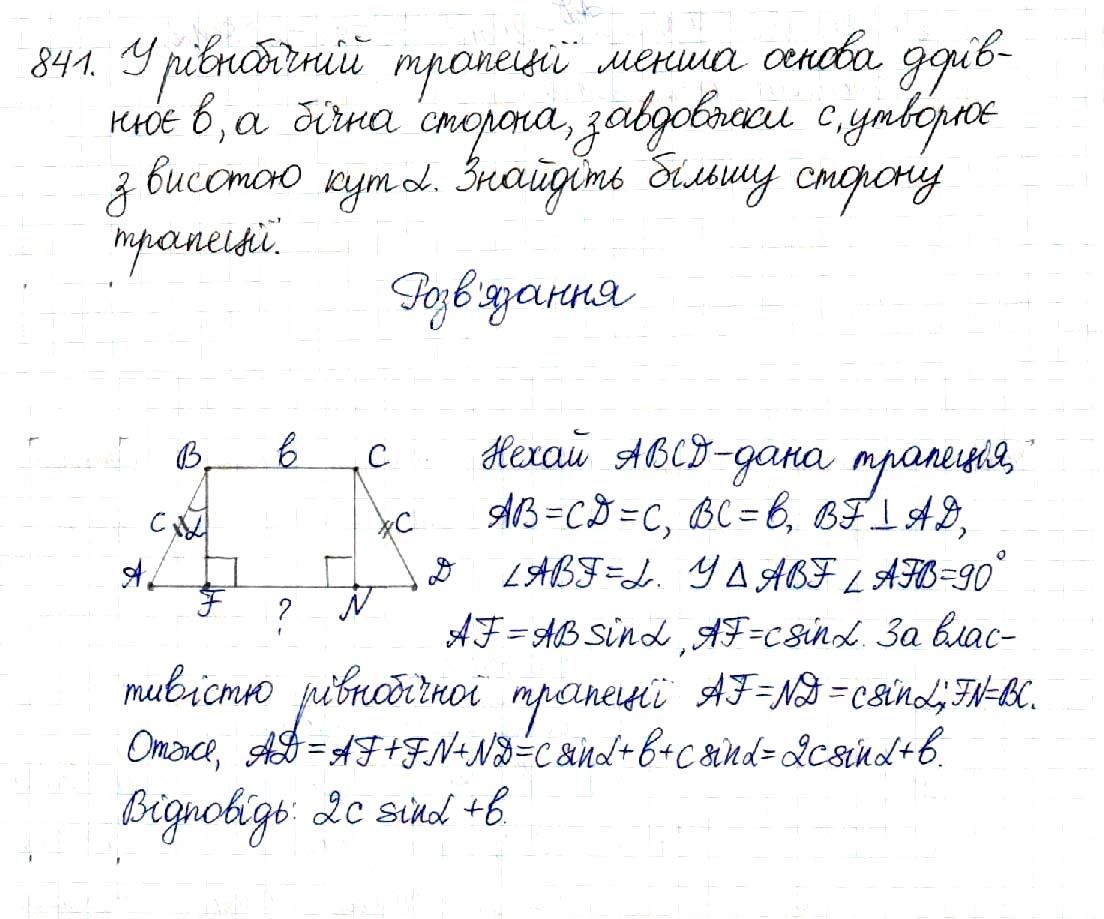 841. У рівнобічній трапеції менша основа дорів-
нює b, а бічна сторона, завдовжки c, утворює
з висотою кут α. Знайдіть більшу сторону
трапеції.
Розв'язання
B b C Нехай ABCD-дана трапеція,
c α c AB=CD=c, BC=b, BF⊥AD,
A D ∠ABF=α. У △ABF ∠AFB=90°
F ? N
AF=AB sinα, AF=c sinα. За влас-
тивістю рівнобічної трапеції AF=ND=c sinα; FN=BC.
Отже, AD=AF+FN+ND=c sinα+b+c sinα=2c sinα+b.
Відповідь: 2c sinα+b.